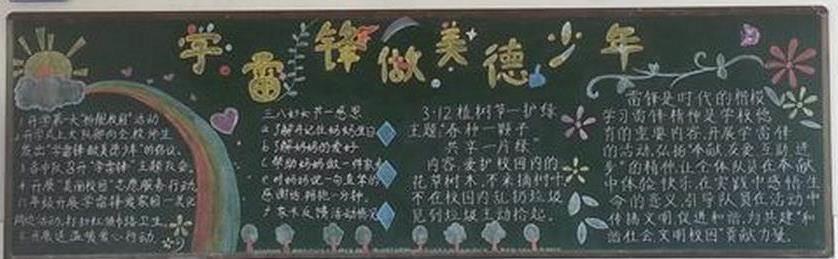 学雷锋做美德少年
1.开学第一天"扮靓校园"活动
2.开学式上大队部向全校师生
发出"学雷锋做美德少年"的倡议。
3.各中队召开"学雷锋"主题队会。
4.开展"美丽校园"志愿服务行动。
卫生。
6.开展送温暖爱心行动。
三八妇女节—感恩
a.了解并记住妈妈生日
b.了解妈妈的爱好
c.帮助妈妈做一件家务
e.对妈妈说一句真挚的
感谢话,拥抱一分钟。
3·12植树节—护绿
主题:"春种一颗子
共享一片绿"
内容:爱护校园内的
花草树木,不采摘树叶
不在校园内乱扔垃圾
见到垃圾主动拾起。
雷锋是时代的楷模
学习雷锋精神是学校德
育的重要内容,开展学雷锋
的活动,弘扬"奉献友爱互助进
步"的精神,让全体队员在奉献
中体验快乐,在实践中感悟生
命的意义,引导队员在活动中
传播文明,促进和谐,为共建"和
谐社会,文明校园"贡献力量。